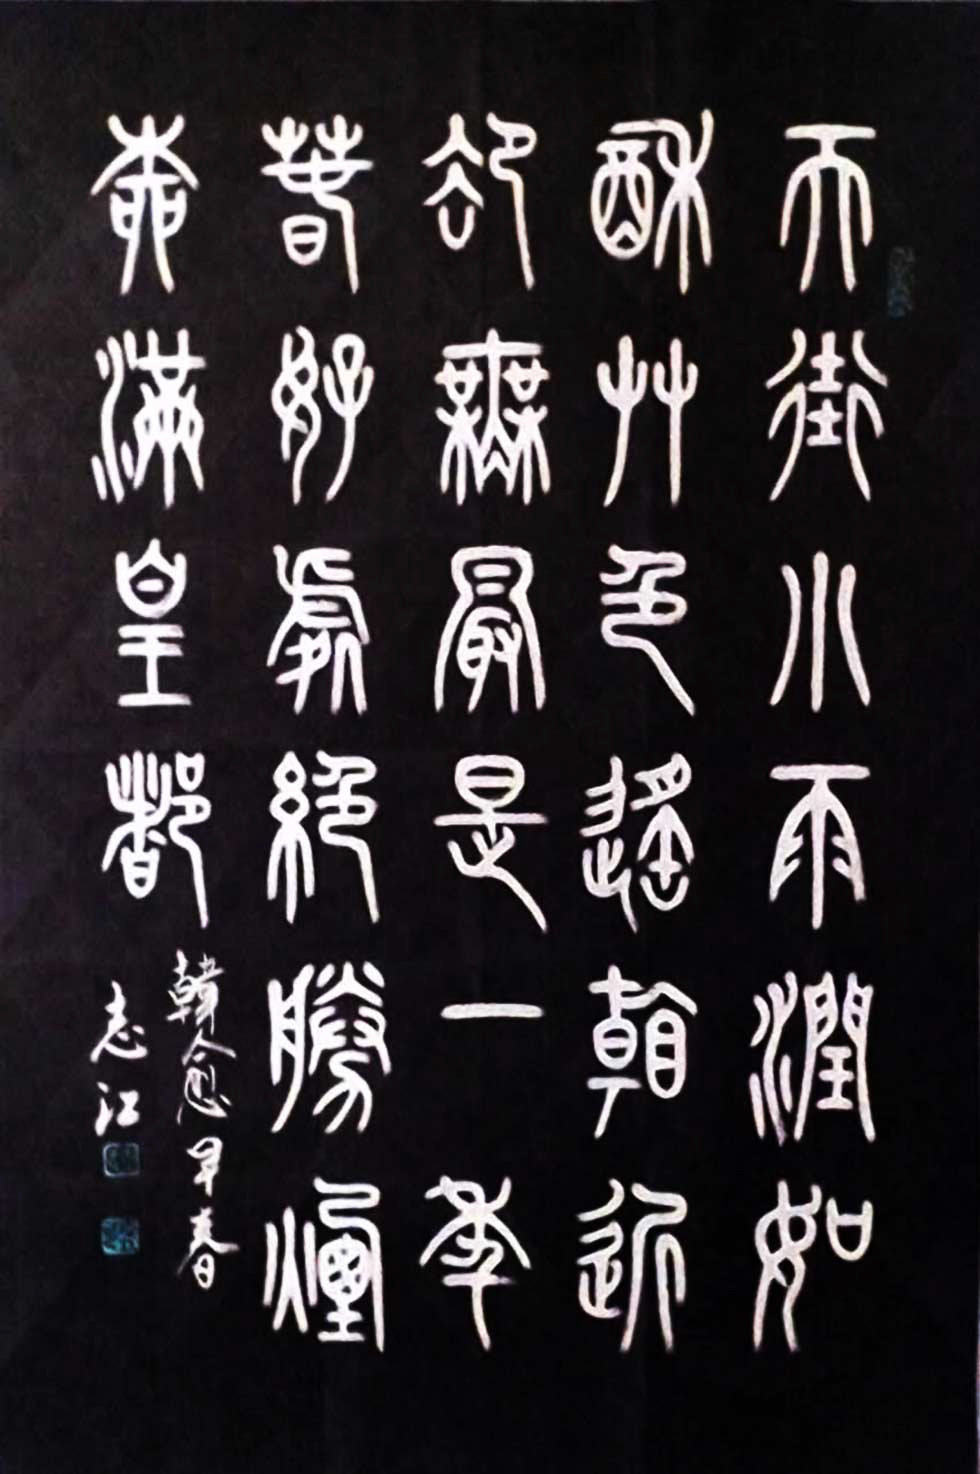 天街小雨潤如
酥草色遙看近
卻無最是一年
春好處絕勝煙
柳滿皇都
韓愈早春
志江